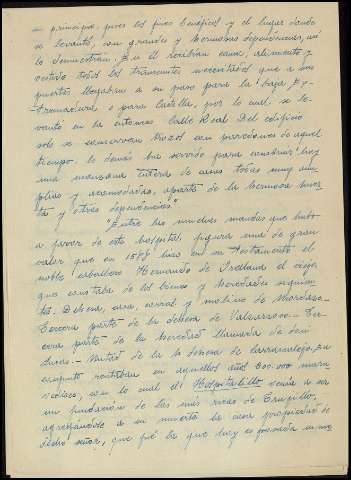 su principio, pues los fines benéficos y el lugar donde
se levantó, con grandes y hermosas dependencias, así
lo demuestran. En él recibían cama, alimento y
vestido todos los transeuntes necesitados que a sus
puertas llegaban a su paso para la baja Ex-
tremadura o para Castilla, por lo cual se le-
vantó en la entonces Calle Real. Del edificio
solo se conservan trozos con paredones de aquel
tiempo lo demás ha servido para construir hoy
una manzana entera de casas todas muy am-
plias y acomodadas, aparte de la hermosa huer-
ta y otras dependencias"
"Entre las muchas mandas que hubo
a favor de este hospital, figura una de gran
valor que en 1578 hizo en su testamento el
noble caballero Hernando de Orellana el viejo
que constaba de los bienes y heredades siguien-
tes. Dehesa, casa, corral y molino de
Tercera parte de la dehesa de Valsarroso. Ter-
cera parte de la heredad llamada de
Mitad de la dehesa de Carrascalejo. En
conjunto rentaban en aquellos años 600.000 mara-
vedises, con lo cual el Hospitalillo venía a ser
un fundación de las más ricas de Trujillo,
agregándose a su muerte la casa propiedad de
dicho señor, que fué la que hoy es posada